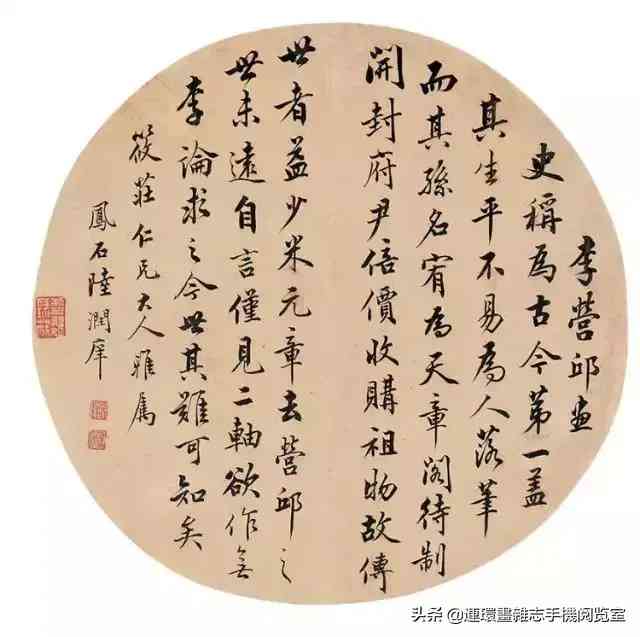 李營邱畫
史稱為古今第一蓋
其生平不易為人落筆
而其孫名宥為天章閣待制
開封府尹倍價收購祖物故傳
世者益少米元章去營邱之
世未遠自言僅見二軸欲作無
李論求之今世其難可知矣
筱莊仁兄大人雅屬
鳳石陸潤庠
头条 @連環畫雜志手機阅览室